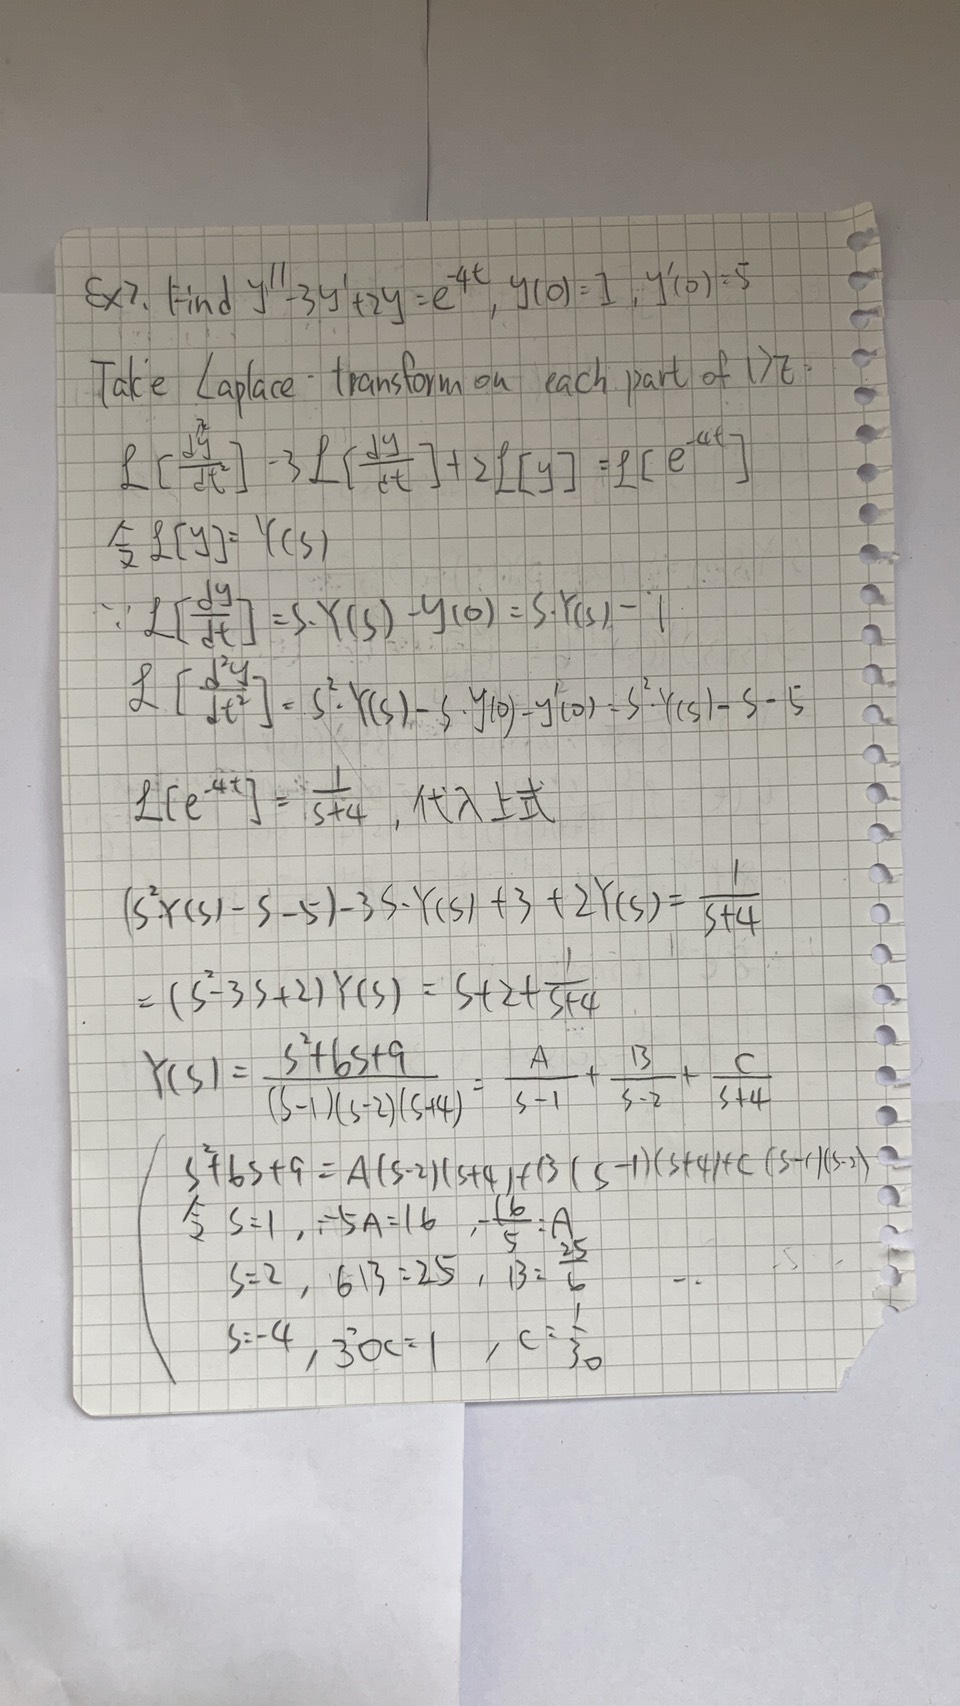 Ex7. Find y''-3y'+2y=e^{-4t}, y(0)=1, y'(0)=5
Take Laplace transform on each part of DE.
ℒ[d²y/dt²]-3ℒ[dy/dt]+2ℒ[y]=ℒ[e^{-4t}]
令 ℒ[y]=Y(s)
∵ ℒ[dy/dt]=s·Y(s)-y(0)=s·Y(s)-1
ℒ[d²y/dt²]=s²·Y(s)-s·y(0)-y'(0)=s²·Y(s)-s-5
ℒ[e^{-4t}]=1/(s+4), 代入上式
(s²Y(s)-s-5)-3s·Y(s)+3+2Y(s)=1/(s+4)
=(s²-3s+2)Y(s)=s+2+1/(s+4)
Y(s)=(s²+6s+9)/((s-1)(s-2)(s+4))=A/(s-1)+B/(s-2)+C/(s+4)
s²+6s+9=A(s-2)(s+4)+B(s-1)(s+4)+C(s-1)(s-2)
令 s=1, -5A=16, -16/5=A
s=2, 6B=25, B=25/6
s=-4, 30C=1, C=1/30